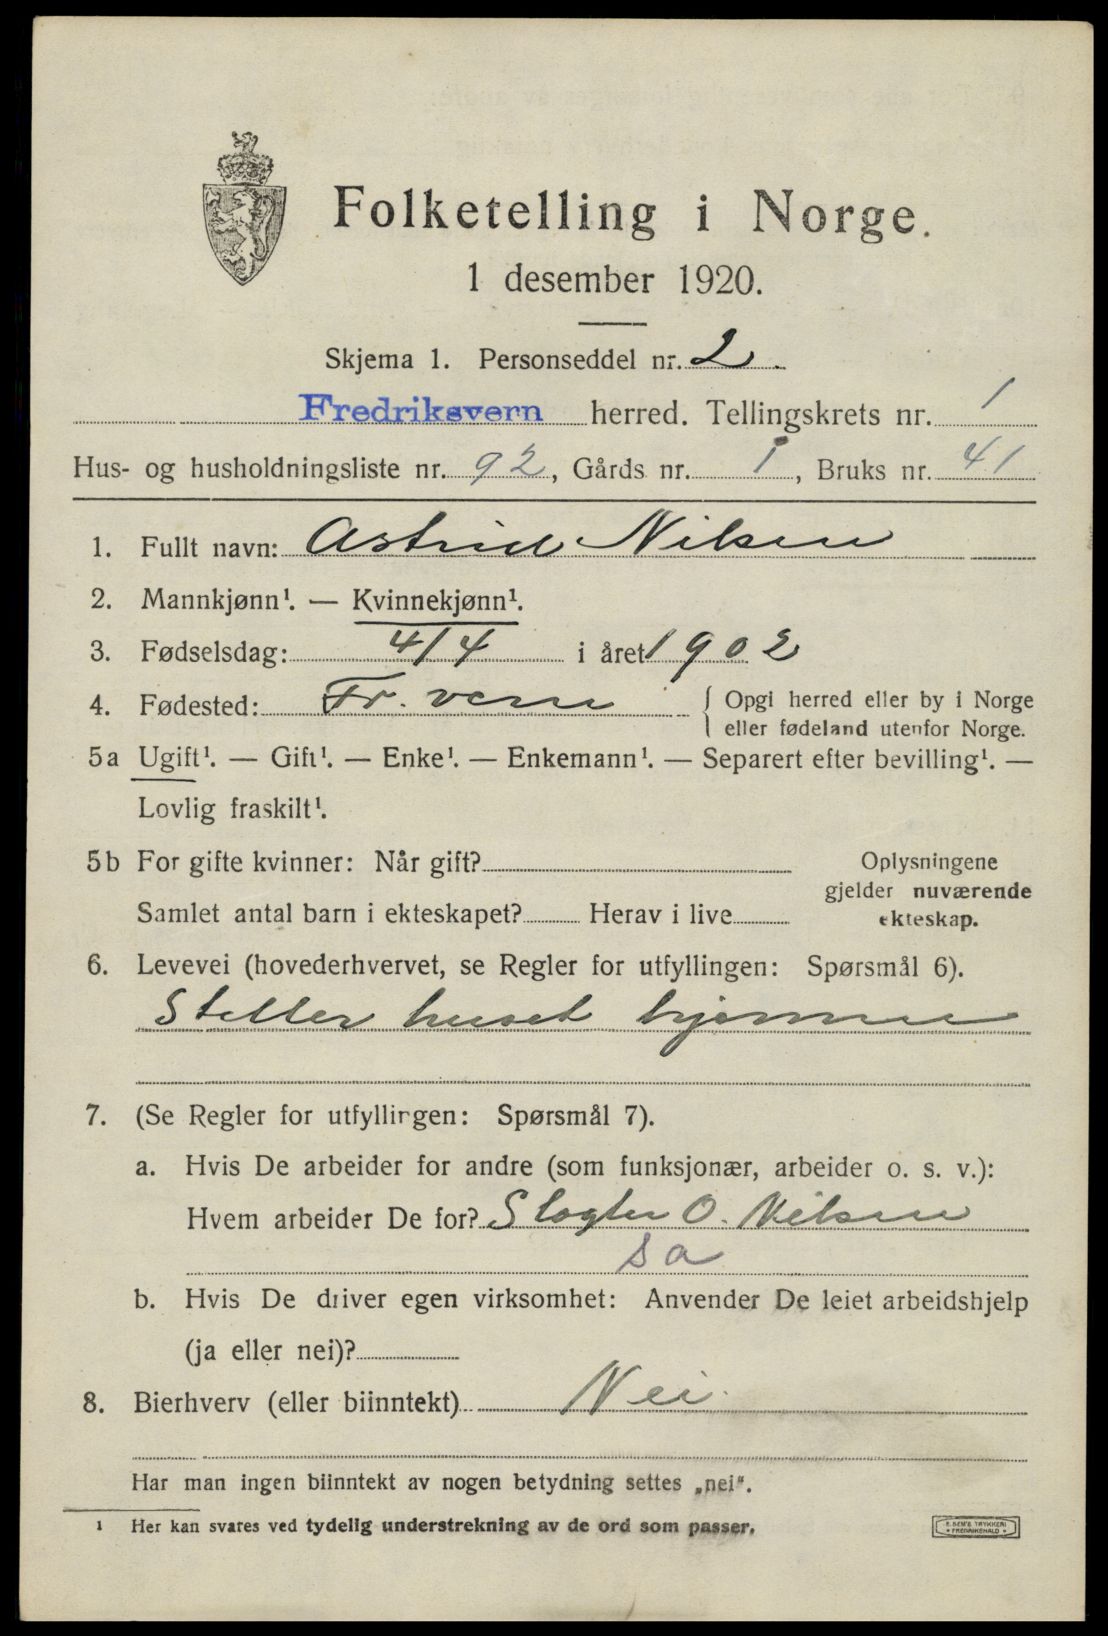 Folketelling i Norge.
1 desember 1920.
Skjema 1. Personseddel nr. 2
Fredriksvern herred. Tellingskrets nr. 1
Hus- og husholdningsliste nr. 92, Gårds nr. 1, Bruks nr. 41
1. Fullt navn: Astrid Nilsen
2. Mannkjønn¹. — Kvinnekjønn¹.
3. Fødselsdag: 4/4 i året 1902
4. Fødested: Fr. vern { Opgi herred eller by i Norge
eller fødeland utenfor Norge.
5a Ugift¹. — Gift¹. — Enke¹. — Enkemann¹. — Separert efter bevilling¹. —
Lovlig fraskilt¹.
5b For gifte kvinner: Når gift?
Samlet antal barn i ekteskapet? Herav i live
Oplysningene
gjelder nuværende
ekteskap.
6. Levevei (hovederhvervet, se Regler for utfyllingen: Spørsmål 6).
Steller huset hjemme
7. (Se Regler for utfyllingen: Spørsmål 7).
a. Hvis De arbeider for andre (som funksjonær, arbeider o. s. v.):
Hvem arbeider De for? Slagter O. Nilsen
sa
b. Hvis De driver egen virksomhet: Anvender De leiet arbeidshjelp
(ja eller nei)?
8. Bierhverv (eller biinntekt) Nei.
Har man ingen biinntekt av nogen betydning settes „nei“.
¹ Her kan svares ved tydelig understrekning av de ord som passer.
E. SEM'S TRYKKERI
FREDRIKSHALD